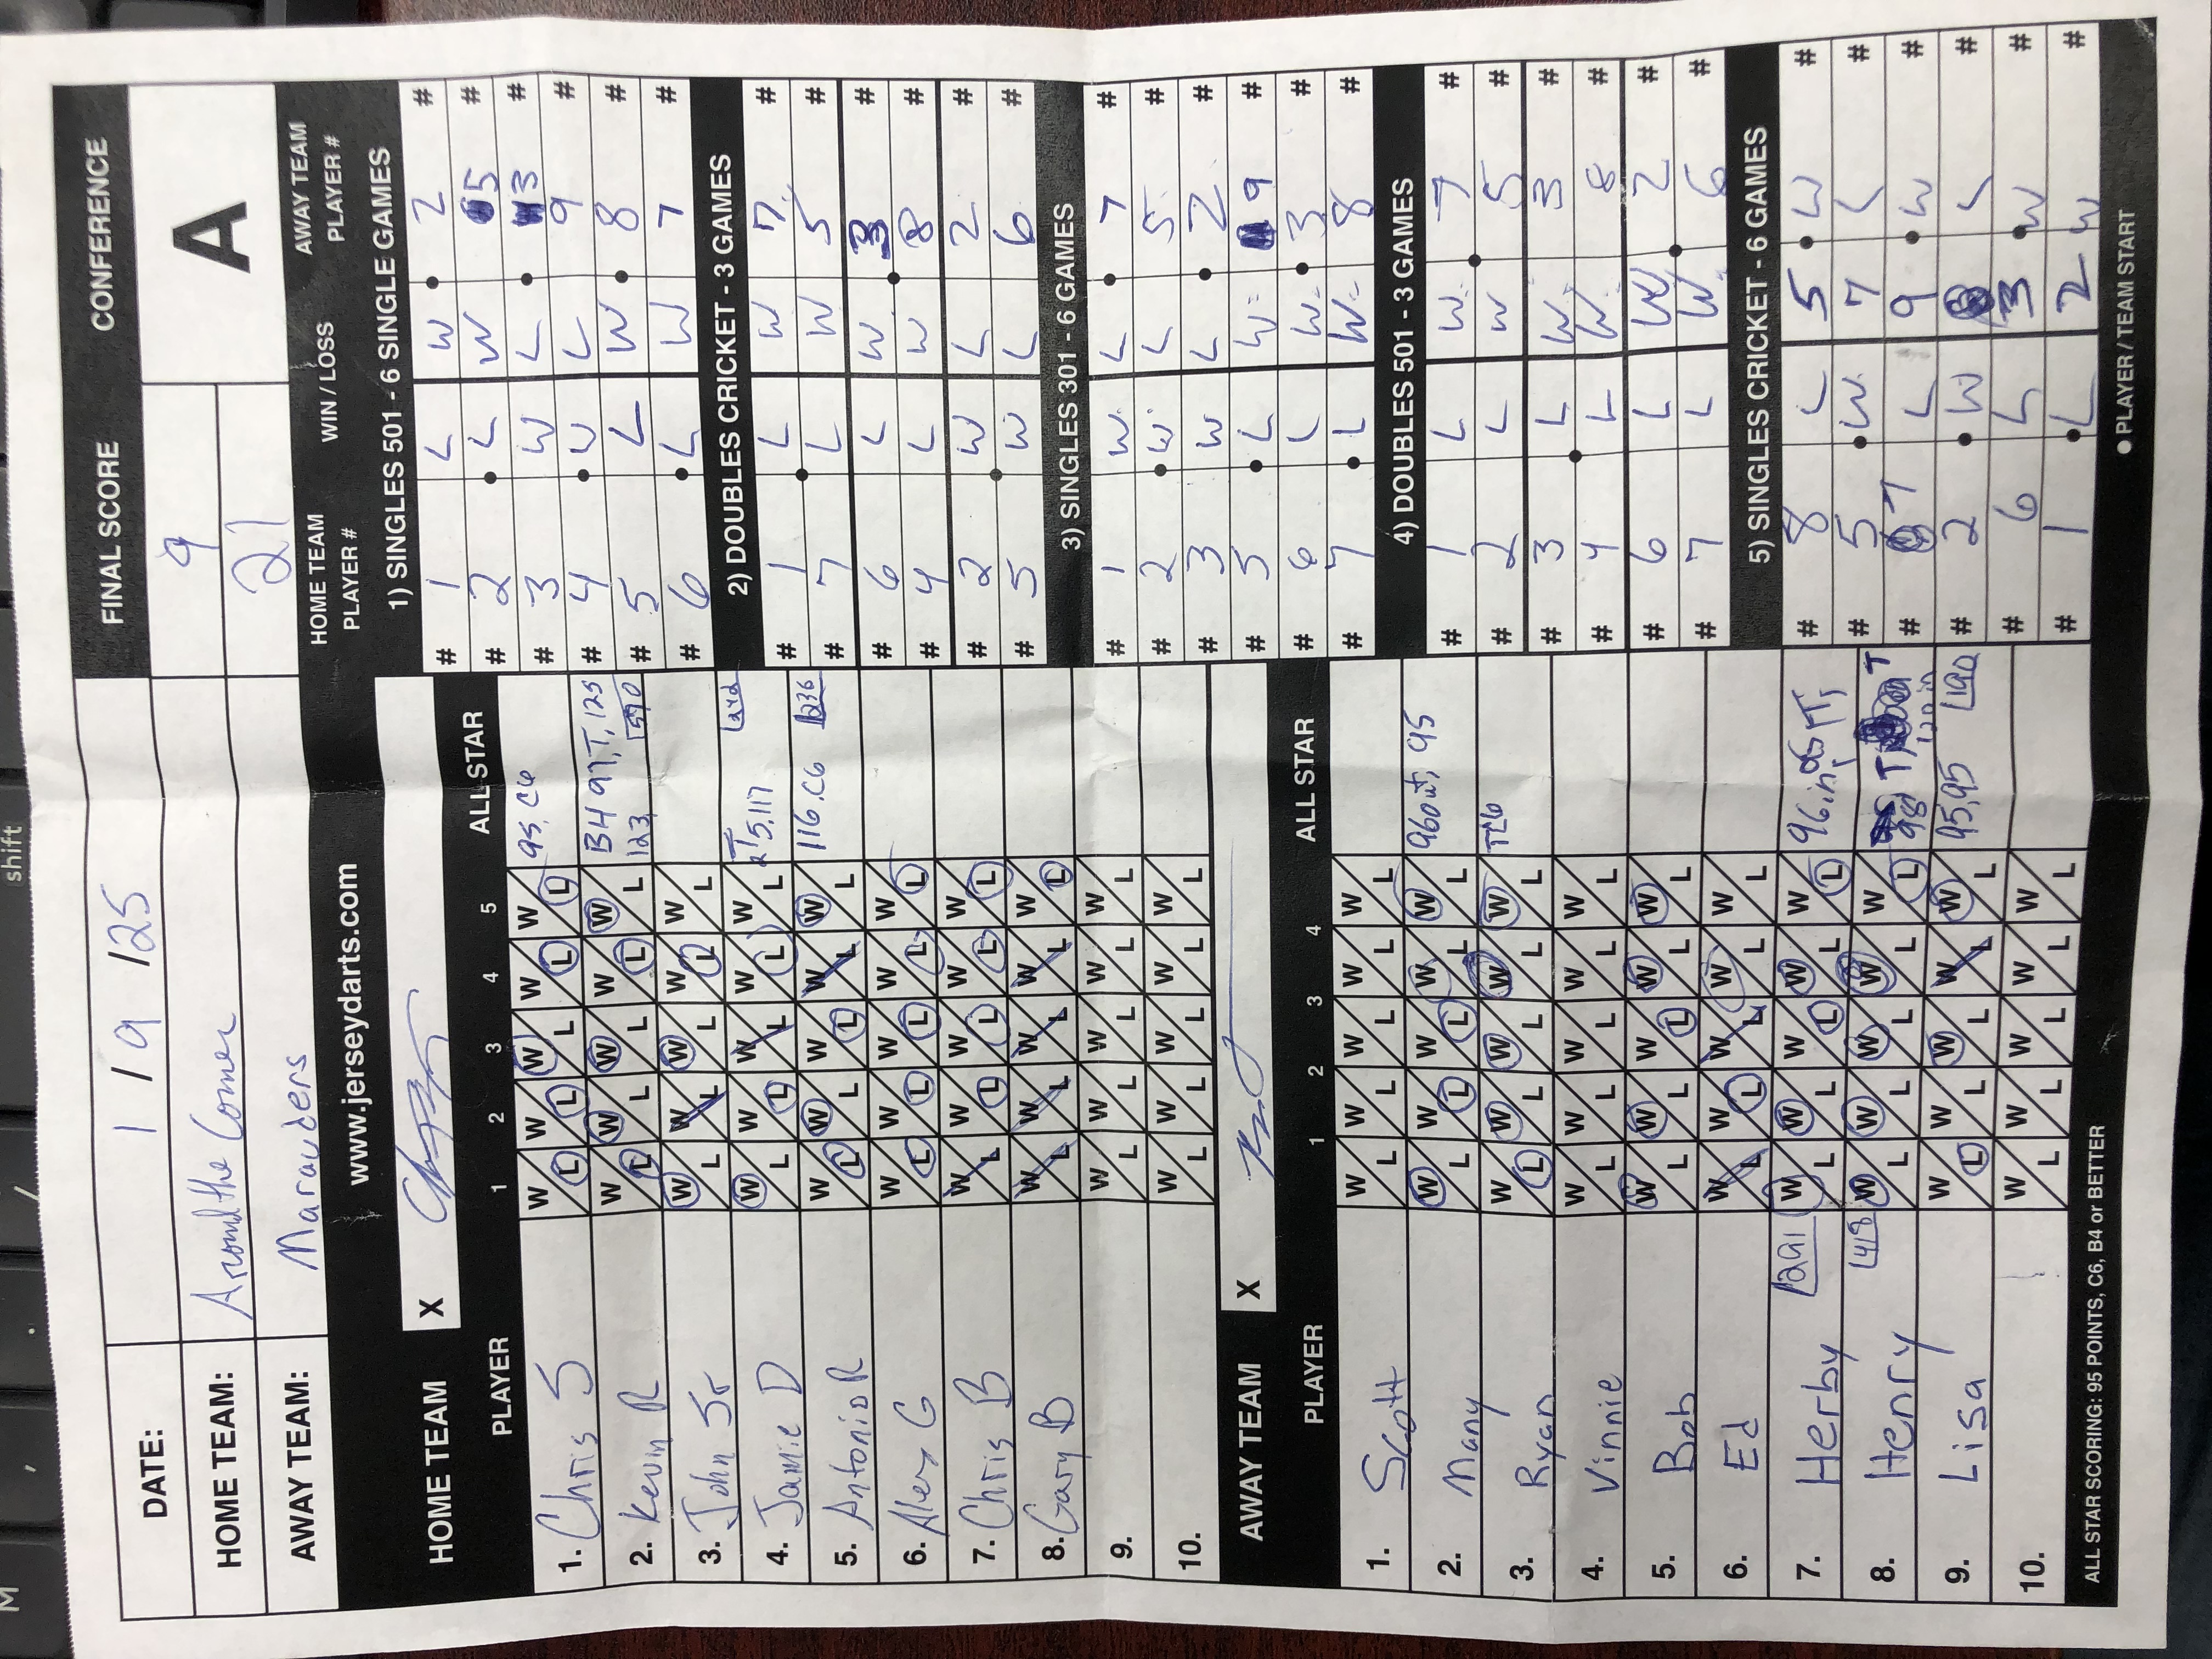 DATE: 1 / 9 / 25
HOME TEAM: Around the Corner
AWAY TEAM: Marauders
FINAL SCORE CONFERENCE
9
21
A
www.jerseydarts.com
HOME TEAM X
PLAYER 1 2 3 4 5 ALL STAR
1. Chris S W L W L W L W L W L 95, C6
2. Kevin R W L W L W L W L W L B4 97, T, 125
123, 570
3. John Sr W L W L W L W L W L
4. Jamie D W L W L W L W L W L
5. Antonio R W L W L W L W L W L 116, C6
6. Alex G W L W L W L W L W L
7. Chris B W L W L W L W L W L
8. Gary B W L W L W L W L W L
9. W L W L W L W L W L
10. W L W L W L W L W L
AWAY TEAM X
PLAYER 1 2 3 4 ALL STAR
1. Scott W L W L W L W L W L
2. Many W L W L W L W L W L 96out, 95
3. Ryan W L W L W L W L W L
4. Vinnie W L W L W L W L W L
5. Bob W L W L W L W L W L
6. Ed W L W L W L W L W L
7. Herby W L W L W L W L W L 96in
8. Henry W L W L W L W L W L
9. Lisa W L W L W L W L W L 95,95
10. W L W L W L W L W L
ALL STAR SCORING: 95 POINTS, C6, B4 or BETTER
HOME TEAM PLAYER # WIN / LOSS AWAY TEAM PLAYER #
1) SINGLES 501 - 6 SINGLE GAMES
# 1 L W 2 #
# 2 L W 5 #
# 3 W L 3 #
# 4 W L 9 #
# 5 L W 8 #
# 6 L W 7 #
2) DOUBLES CRICKET - 3 GAMES
# 1 L W 7 #
# 7 L W 5 #
# 6 L W 3 #
# 4 L W 8 #
# 2 W L 2 #
# 5 W L 6 #
3) SINGLES 301 - 6 GAMES
# 1 W L 7 #
# 2 W L 5 #
# 3 W L 2 #
# 5 L W 9 #
# 6 L W 3 #
# 7 L W 8 #
4) DOUBLES 501 - 3 GAMES
# 1 L W 7 #
# 2 L W 5 #
# 3 L W 3 #
# 4 L W 8 #
# 6 L W 2 #
# 7 L W 6 #
5) SINGLES CRICKET - 6 GAMES
# 8 L 5 W #
# 5 W 7 L #
# 7 L 9 W #
# 2 W 8 L #
# 6 L 3 W #
# 1 L 2 W #
● PLAYER / TEAM START
shift
M
,
.
/